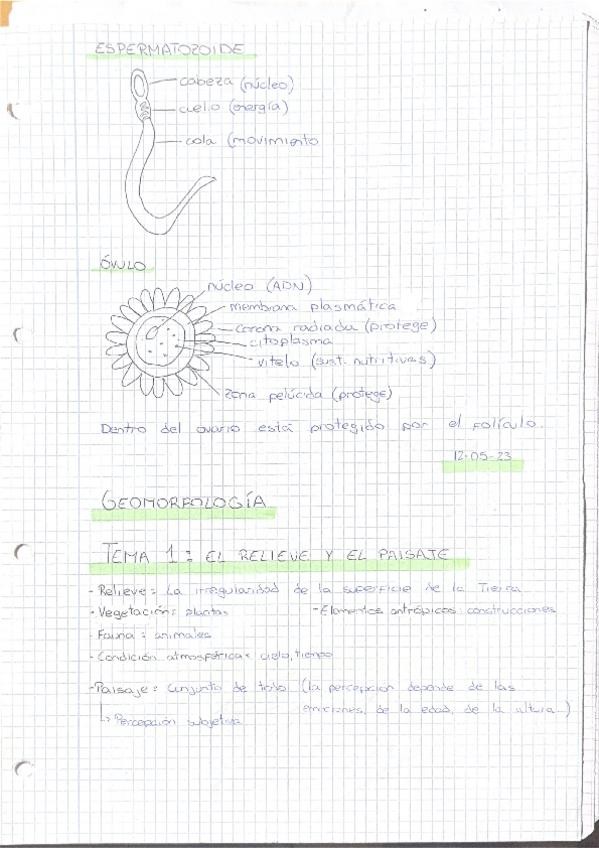 ESPERMATOZOIDE
cabeza (núcleo)
cuello (energía)
cola (movimiento
ÓVULO
núcleo (ADN)
membrana plasmática
corona radiada (protege)
citoplasma
vitelo (sust. nutritivas)
zona pelúcida (protege)
Dentro del ovario está protegido por el folículo.
12-05-23
GEOMORFOLOGÍA
TEMA 1: EL RELIEVE Y EL PAISAJE
- Relieve: La irregularidad de la superficie de la Tierra
- Vegetación: plantas - Elementos antrópicos: construcciones
- Fauna: animales
- Condición atmosférica: cielo, tiempo
- Paisaje: Conjunto de todo (la percepción depende de las
emociones, de la edad, de la altura)
↳ Percepción subjetiva